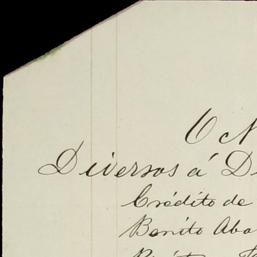 Diversos á D
Crédito de
Benito Aba